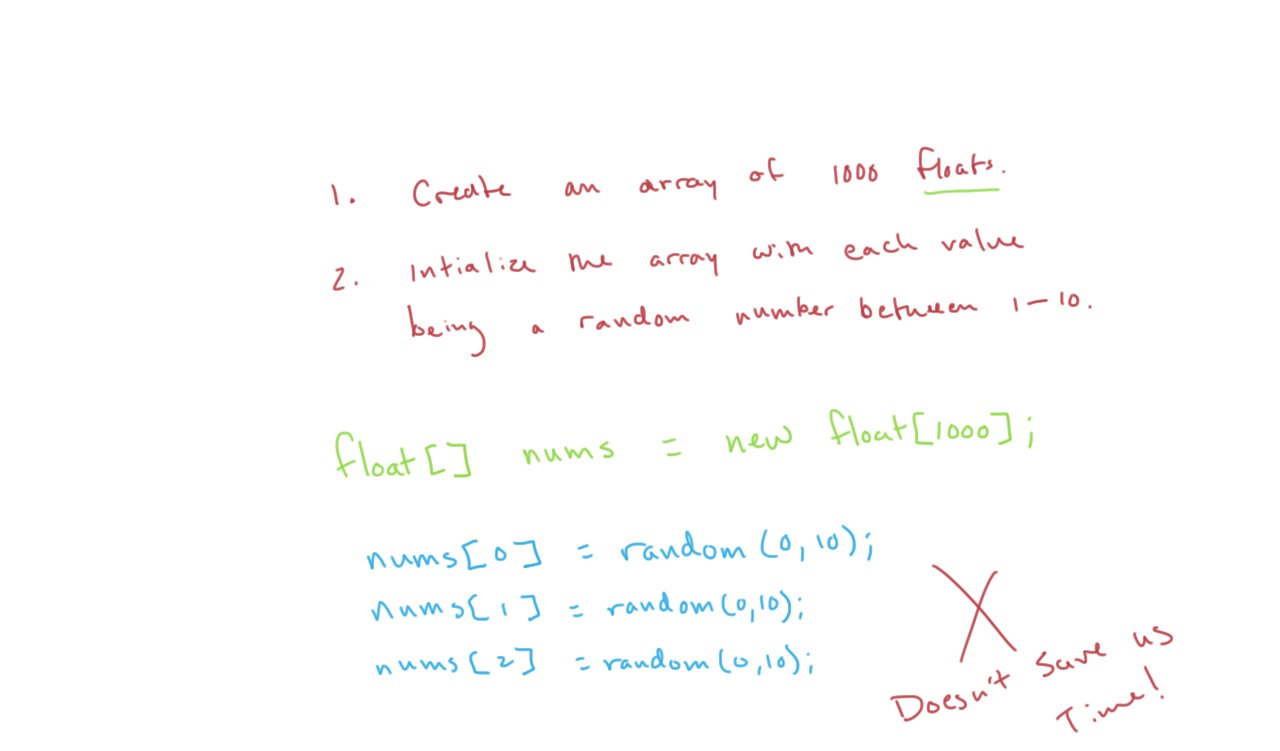 1. Create an array of 1000 floats.
2. Intialize the array with each value
being a random number between 1-10.
float[] nums = new float[1000];
nums[0] = random(0,10);
nums[1] = random(0,10);
nums[2] = random(0,10);
Doesn't save us
Time!